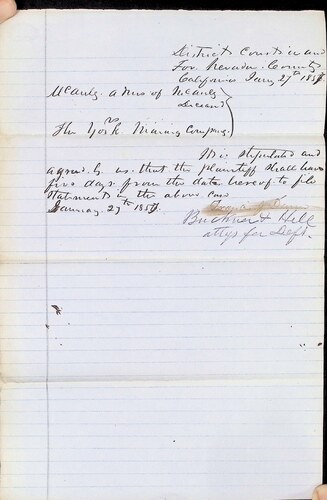 District Court in and
For Nevada County
California Jany 27th 1857.
McCauly. admrs of McCauly
Deceased
vs
The York Mining Company.
It is stipulated and
agreed by us that the plaintiff shall have
five days from the date hereof to file
statement in the above case
January 27th 1857.
Buckner & Hill
attys for Deft.